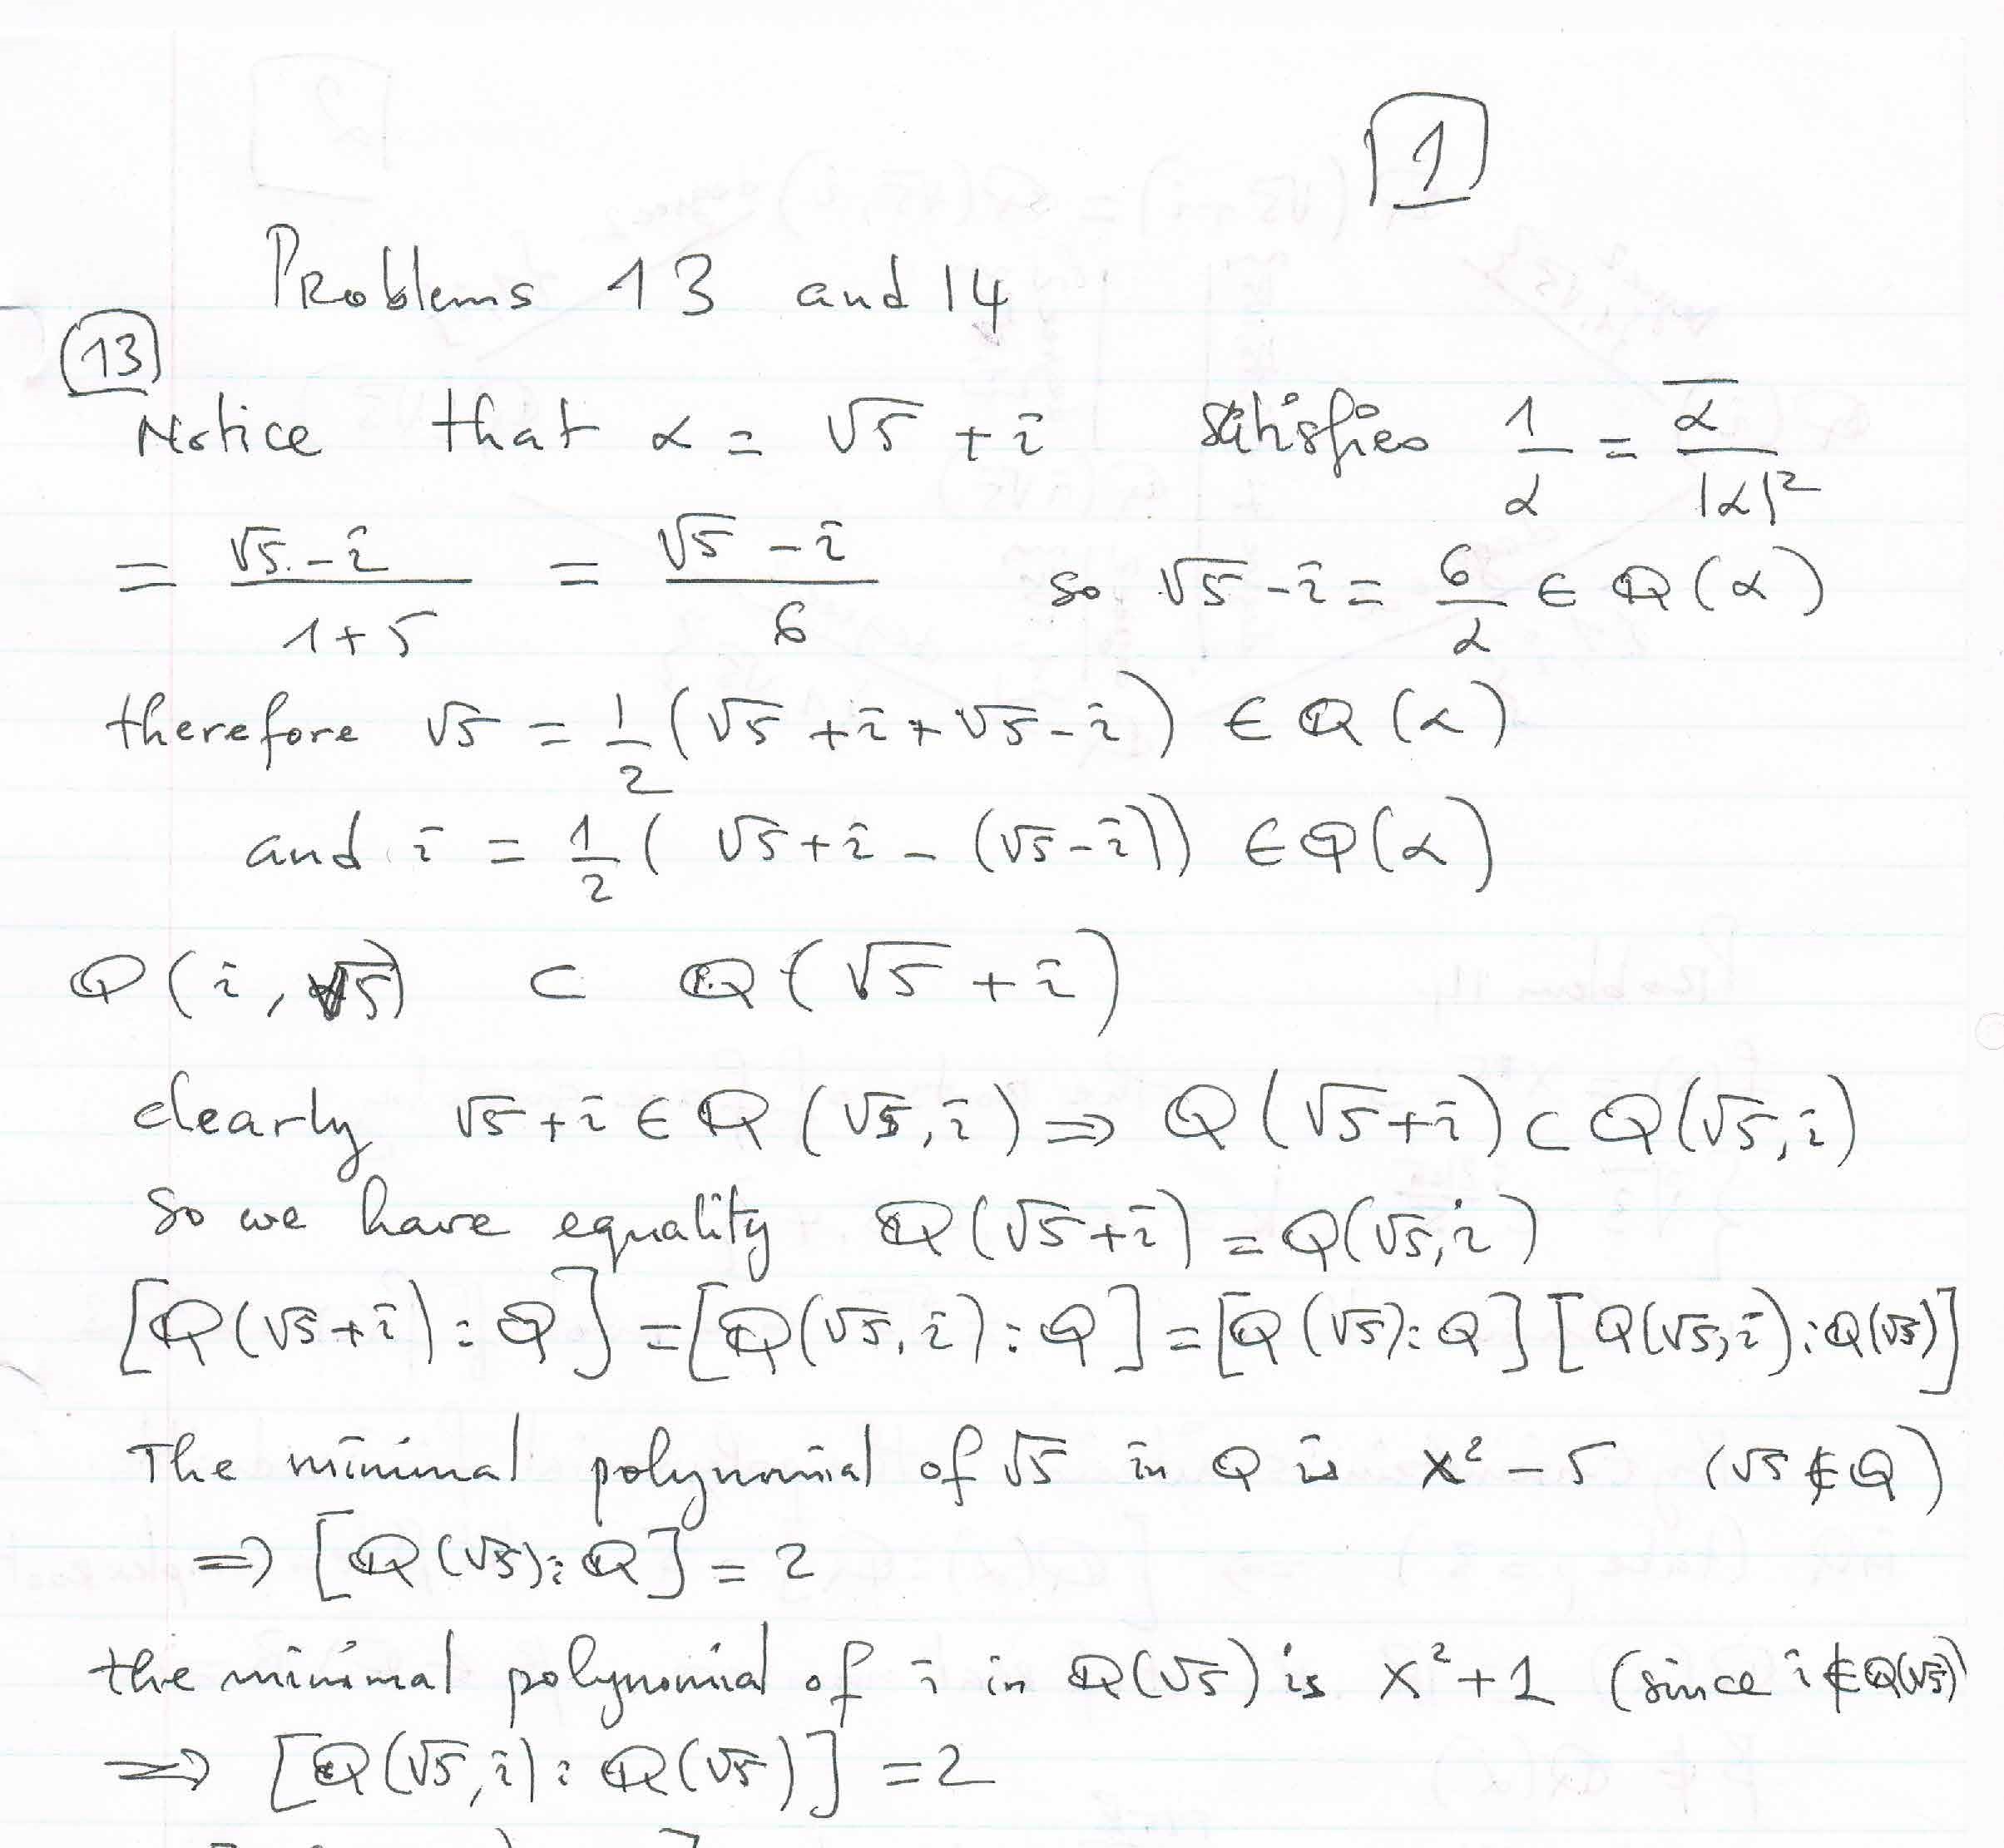 1
Problems 13 and 14
13
Notice that α = √5 + i satisfies 1/α = ᾱ/|α|²
= (√5 - i)/(1+5) = (√5 - i)/6 so √5 - i = 6/α ∈ Q(α)
therefore √5 = 1/2 (√5 + i + √5 - i) ∈ Q(α)
and i = 1/2 ( √5 + i - (√5 - i)) ∈ Q(α)
Q(i, √5) ⊂ Q(√5 + i)
clearly √5 + i ∈ Q(√5, i) ⇒ Q(√5 + i) ⊂ Q(√5, i)
so we have equality Q(√5 + i) = Q(√5, i)
[Q(√5 + i) : Q] = [Q(√5, i) : Q] = [Q(√5) : Q] [Q(√5, i) : Q(√5)]
The minimal polynomial of √5 in Q is x² - 5 (√5 ∉ Q)
⇒ [Q(√5) : Q] = 2
the minimal polynomial of i in Q(√5) is x² + 1 (since i ∉ Q(√5)
⇒ [Q(√5, i) : Q(√5)] = 2